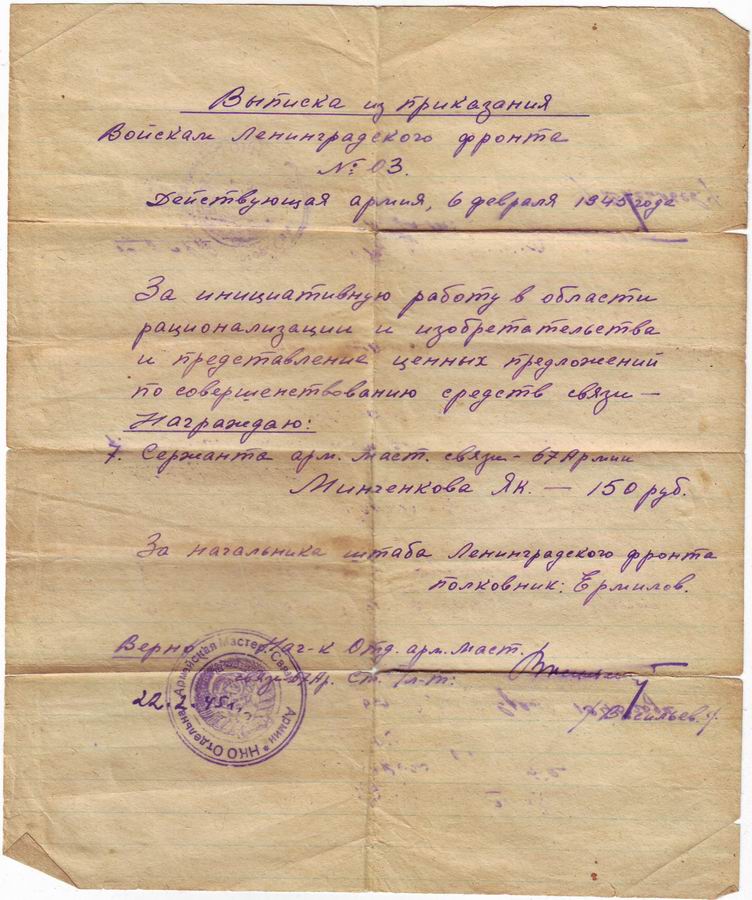 Выписка из приказания
Войскам Ленинградского фронта
№ 03.
Действующая армия, 6 февраля 1945 года
За инициативную работу в области
рационализации и изобретательства
и представление ценных предложений
по совершенствованию средств связи —
Награждаю:
7. Сержанта арм. маст. связи - 67 Армии
Минченкова Як. — 150 руб.
За начальника штаба Ленинградского фронта
полковник: Ермилов.
Верно: Нач-к Отд. арм. маст.
связи 67 Ар. Ст. Л-т:
22.2.45
/Васильев./
НКО Отдельная Армейская Мастер. Связи Армии